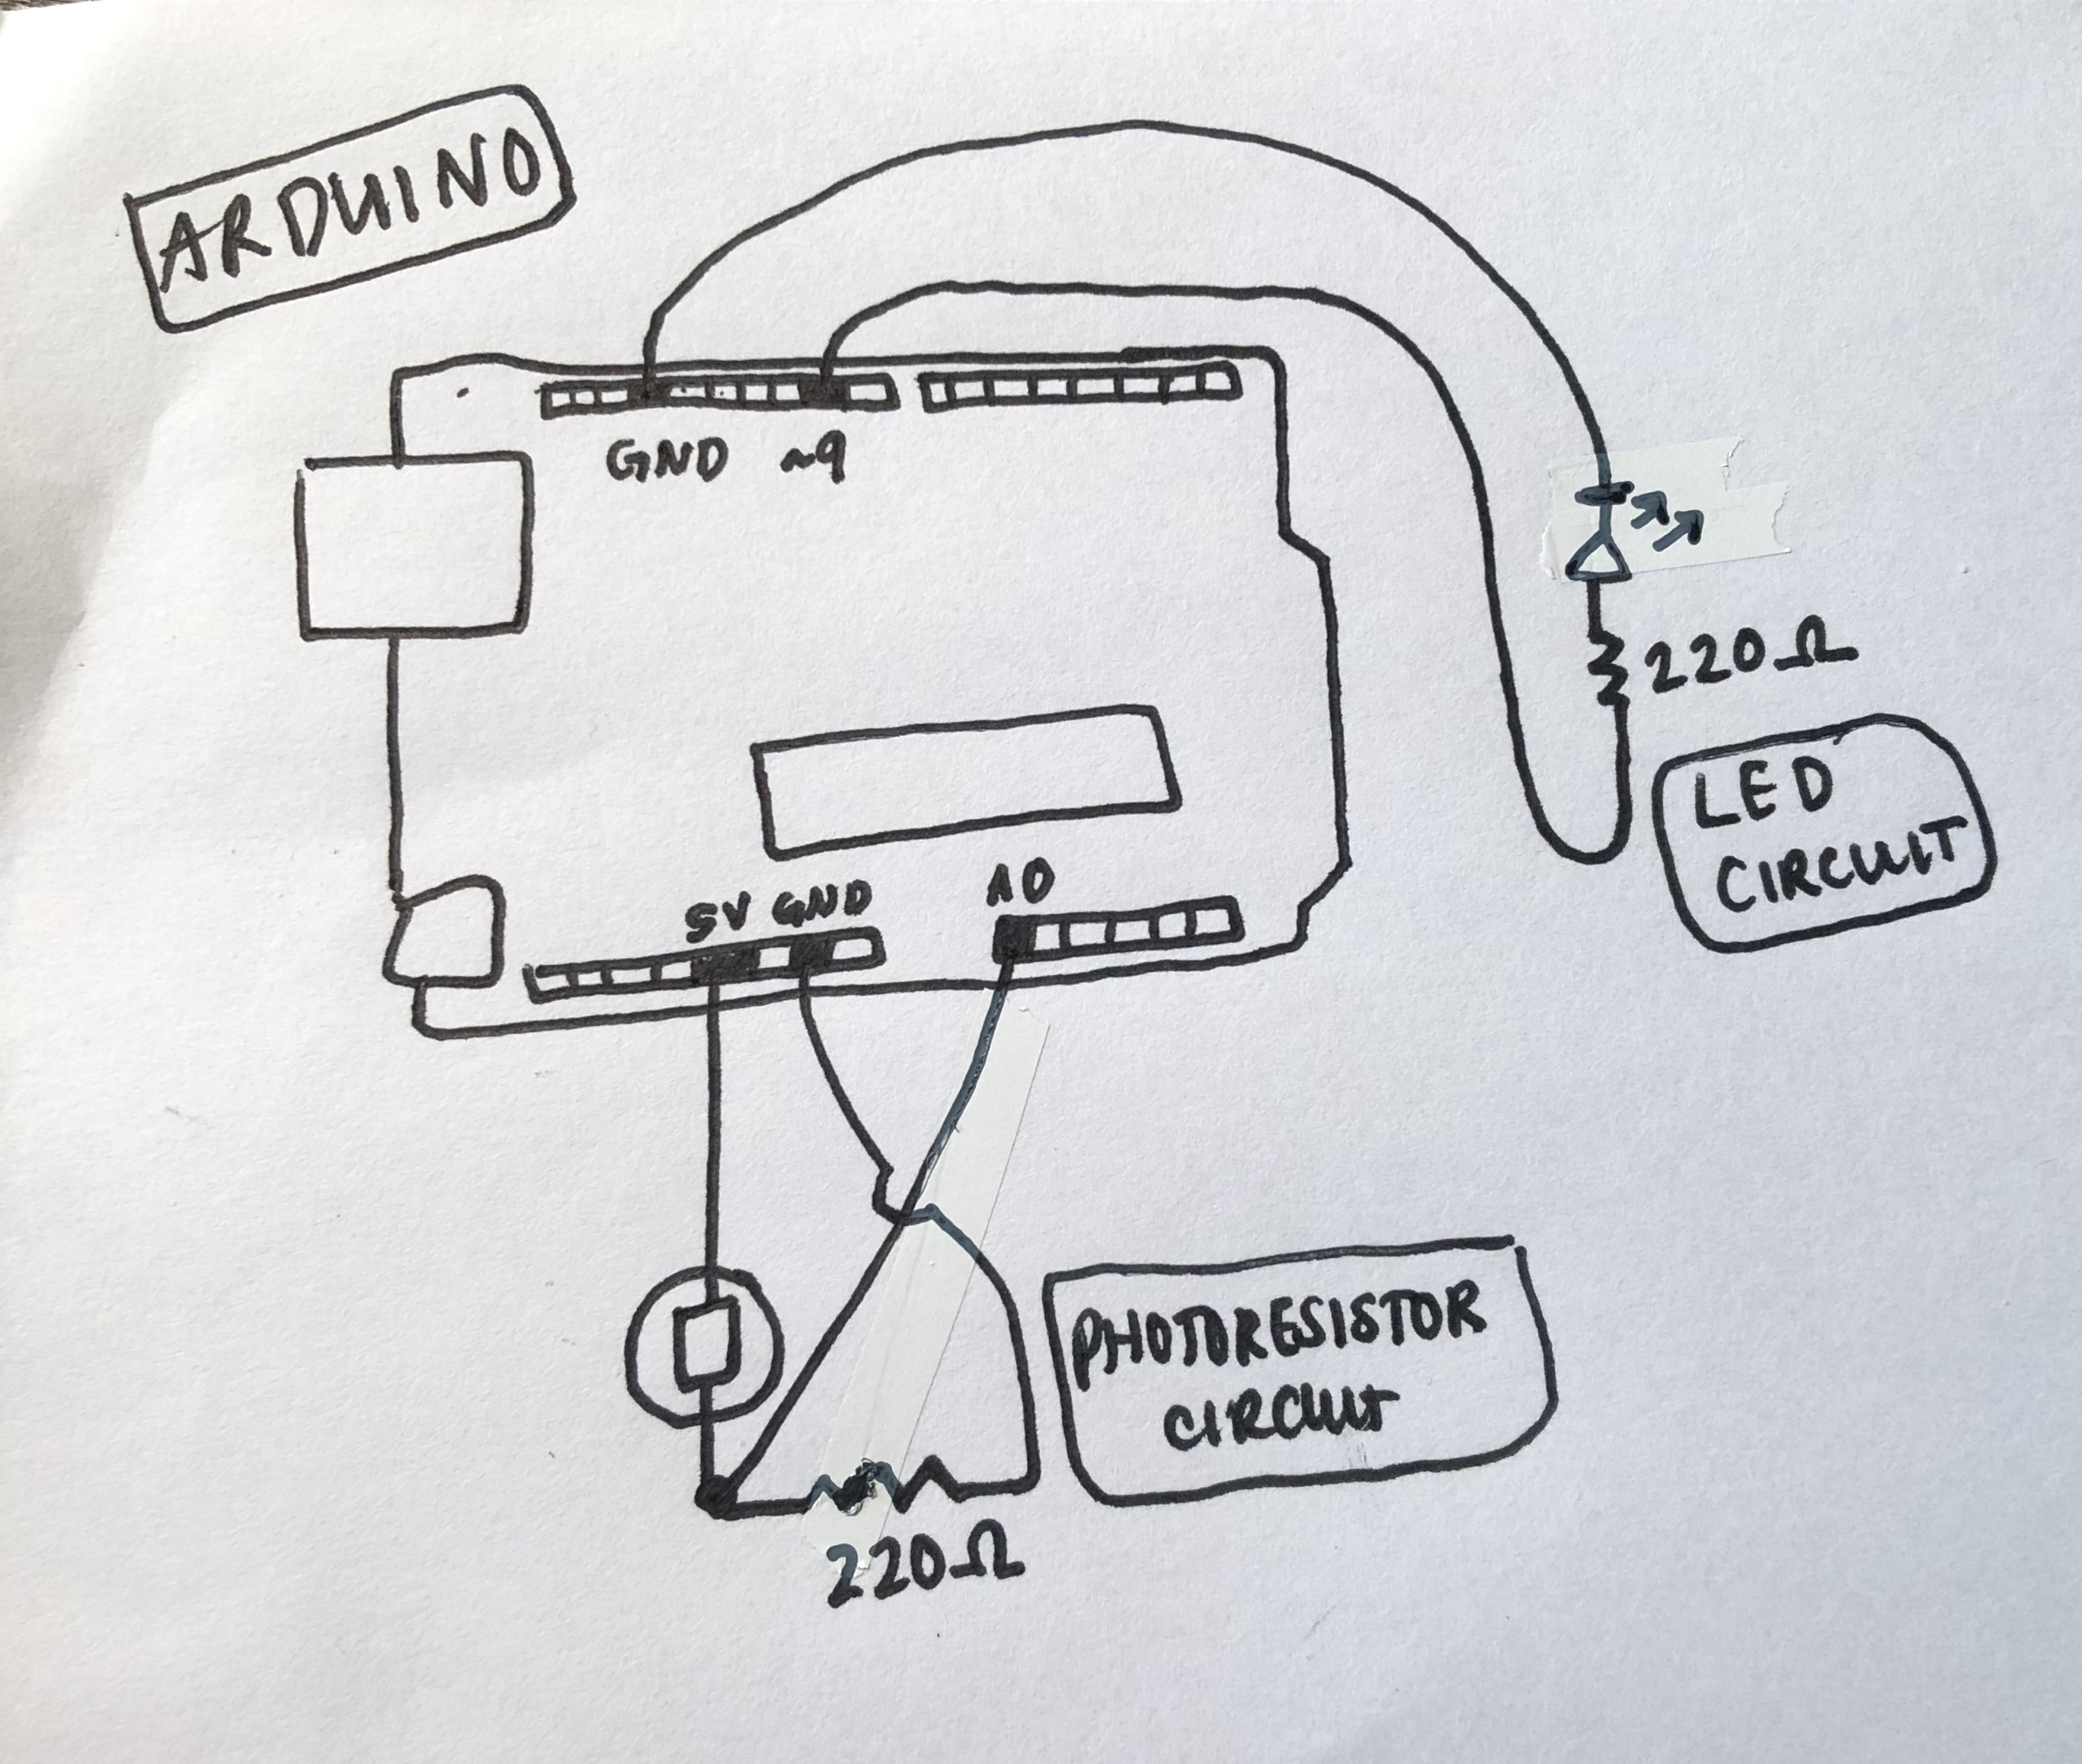 ARDUINO
GND ~9
220Ω
LED
CIRCUIT
5V GND A0
PHOTORESISTOR
CIRCUIT
220Ω